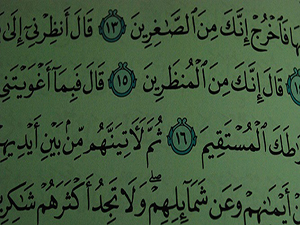 فَٱخْرُجْ إِنَّكَ مِنَ ٱلصَّٰغِرِينَ ١٣ قَالَ أَنظِرْنِىٓ إِلَىٰ
قَالَ إِنَّكَ مِنَ ٱلْمُنظَرِينَ ١٥ قَالَ فَبِمَآ أَغْوَيْتَنِى
ٱلْمُسْتَقِيمَ ١٦ ثُمَّ لَـَٔاتِيَنَّهُم مِّنۢ بَيْنِ
أَيْمَٰنِهِمْ وَعَن شَمَآئِلِهِمْ ۖ وَلَا تَجِدُ أَكْثَرَهُمْ شَٰكِرِينَ